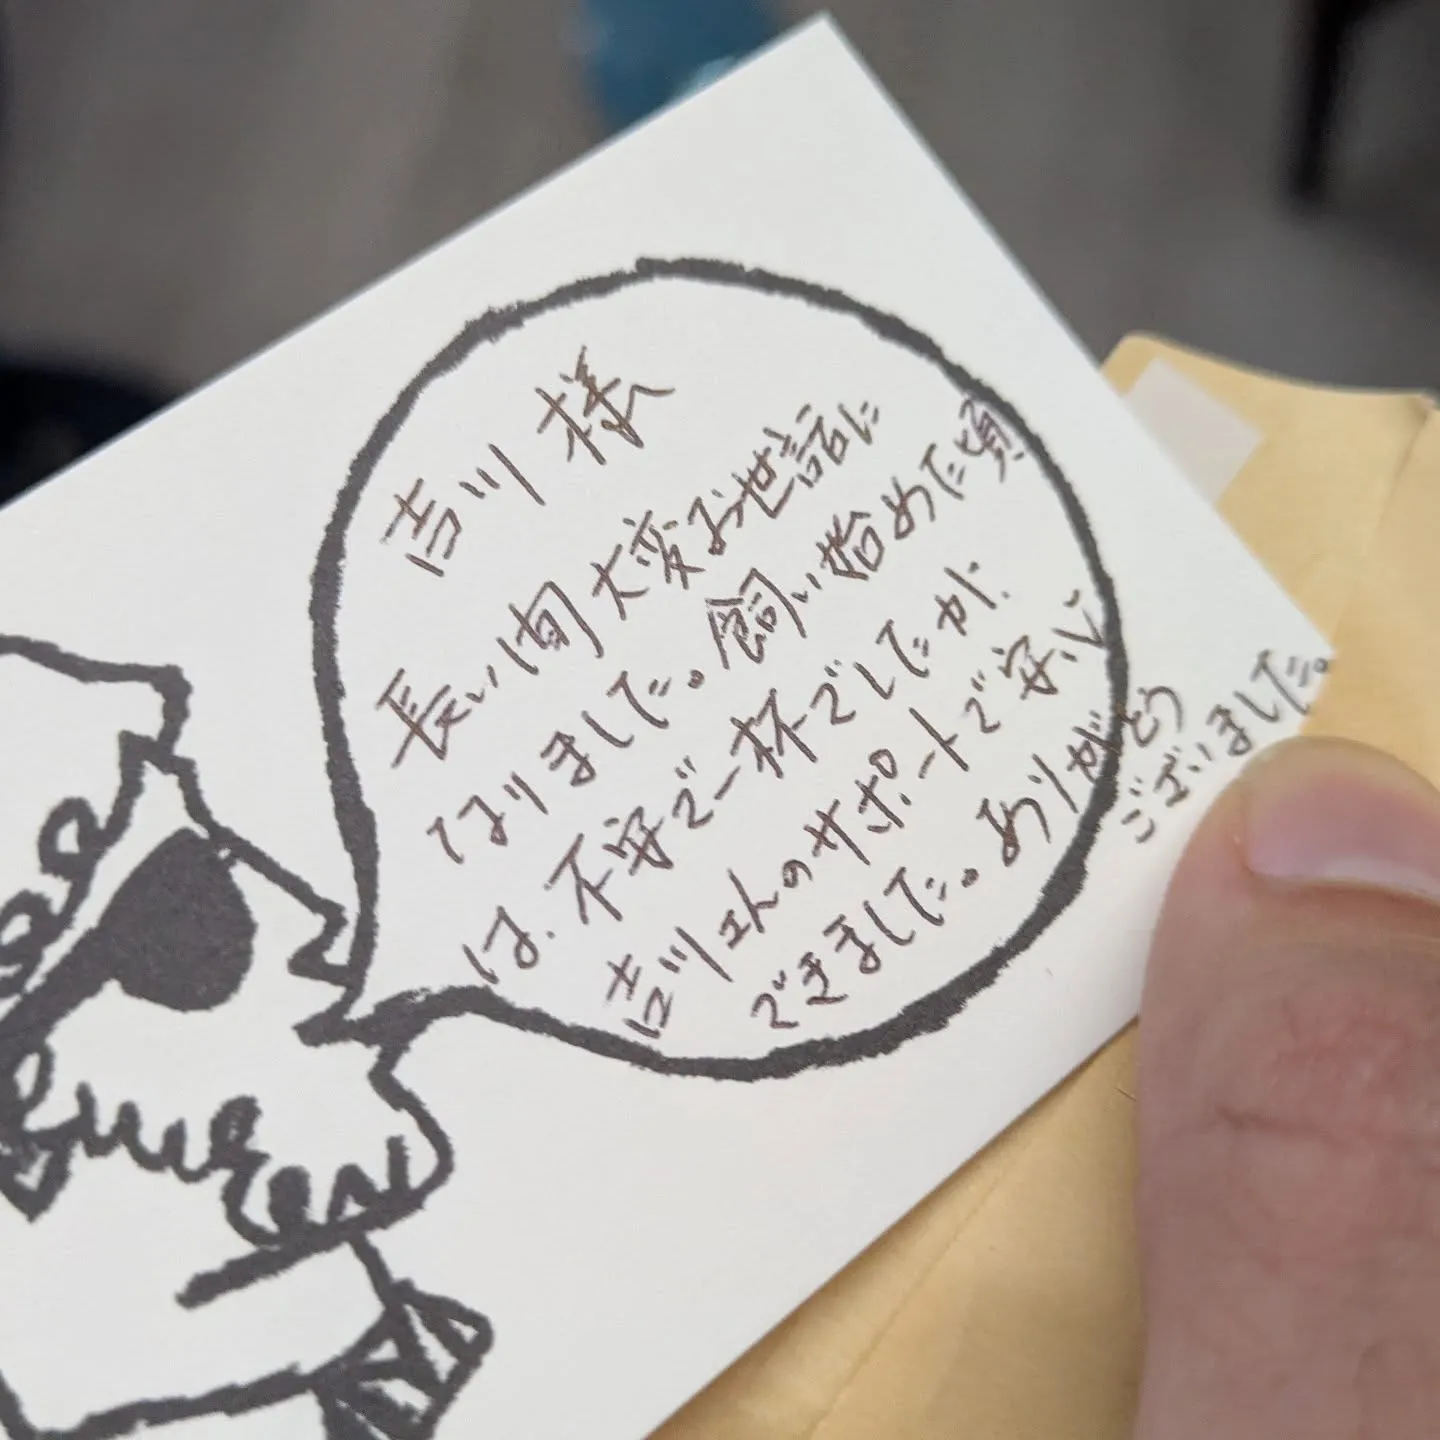 吉川 様
長い間大変お世話に
なりました。飼い始めた頃
は、不安で一杯でしたが、
吉川さんのサポートで安心
できました。ありがとう
ございました。